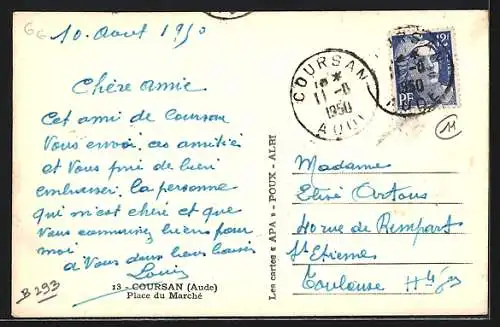 10. Aout 1950
Chère amie
Cet ami de Coursan
Vous envoi ces amitiés
et Vous prie de bien
embrasser la personne
qui m'est chéré et que
Vous connaissez biens pour
moi
à Vous deux bons baisers
Louis
B 293
13 - COURSAN (Aude)
Place du Marché
Les cartes « APA » - POUX - ALBI
COURSAN
11-8
1950
AUDE
12F
PF
11
Madame
Elise
40 rue de Rempart
St Etienne
Toulouse Hte